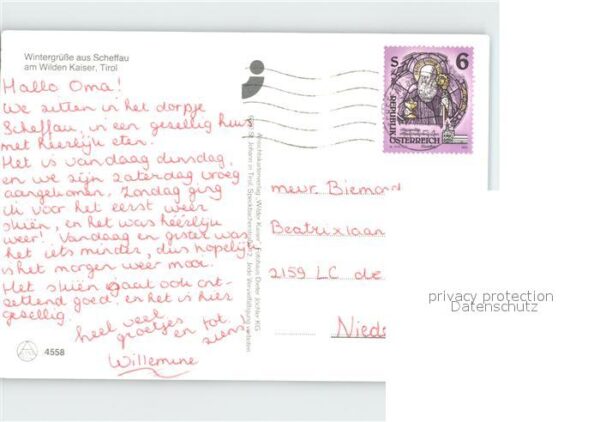 Wintergrüße aus Scheffau
am Wilden Kaiser, Tirol
Hallo Oma!
We zitten in het dorpje
Scheffau, in een gezellig huis
met heerlijk eten.
Het is vandaag dinsdag,
en we zijn zaterdag vroeg
aangekomen. Zondag ging
ik voor het eerst weer
skiën, en het was heerlijk
weer! Vandaag en gister was
het iets minder, dus hopelijk
is het morgen weer mooi.
Het skiën gaat ook ont-
zettend goed! en het is hier
gezellig.
heel veel
groetjes en tot
ziens!
Willemine
4558
Ansichtskartenverlag "Wilder Kaiser" Fotohaus Dieter Jöchler KG
St. Johann in Tirol, Speckbacherstraße Jede Vervielfältigung verboten
S 6
REPUBLIK
ÖSTERREICH
mevr. Biemond
Beatrixlaan
2159 LC de
Nieds
privacy protection
Datenschutz